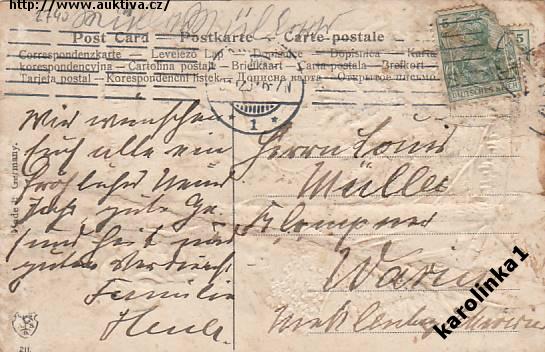 www.auktiva.cz
Post Card — Postkarte — Carte-postale
Correspondenzkarte — Levelező Lap — Dopisnice — Dopisnica —
spondencyjna — Cartolina postale — Briefkaart — Carta postala — Brefkort —
Tarjeta postal — Korespondenční listek — Дописна карта — Открытое письмо
5
5
DEUTSCHES REICH
1
Made in Germany.
Wir wünschen
Euch alle ein
fröhliches Neues
Jahr gute Ge
sundheit und
guten Verdienst
Familie
Herrn Louis
Müller
Klempner
Warin
Mecklenburg
karolinka1
211